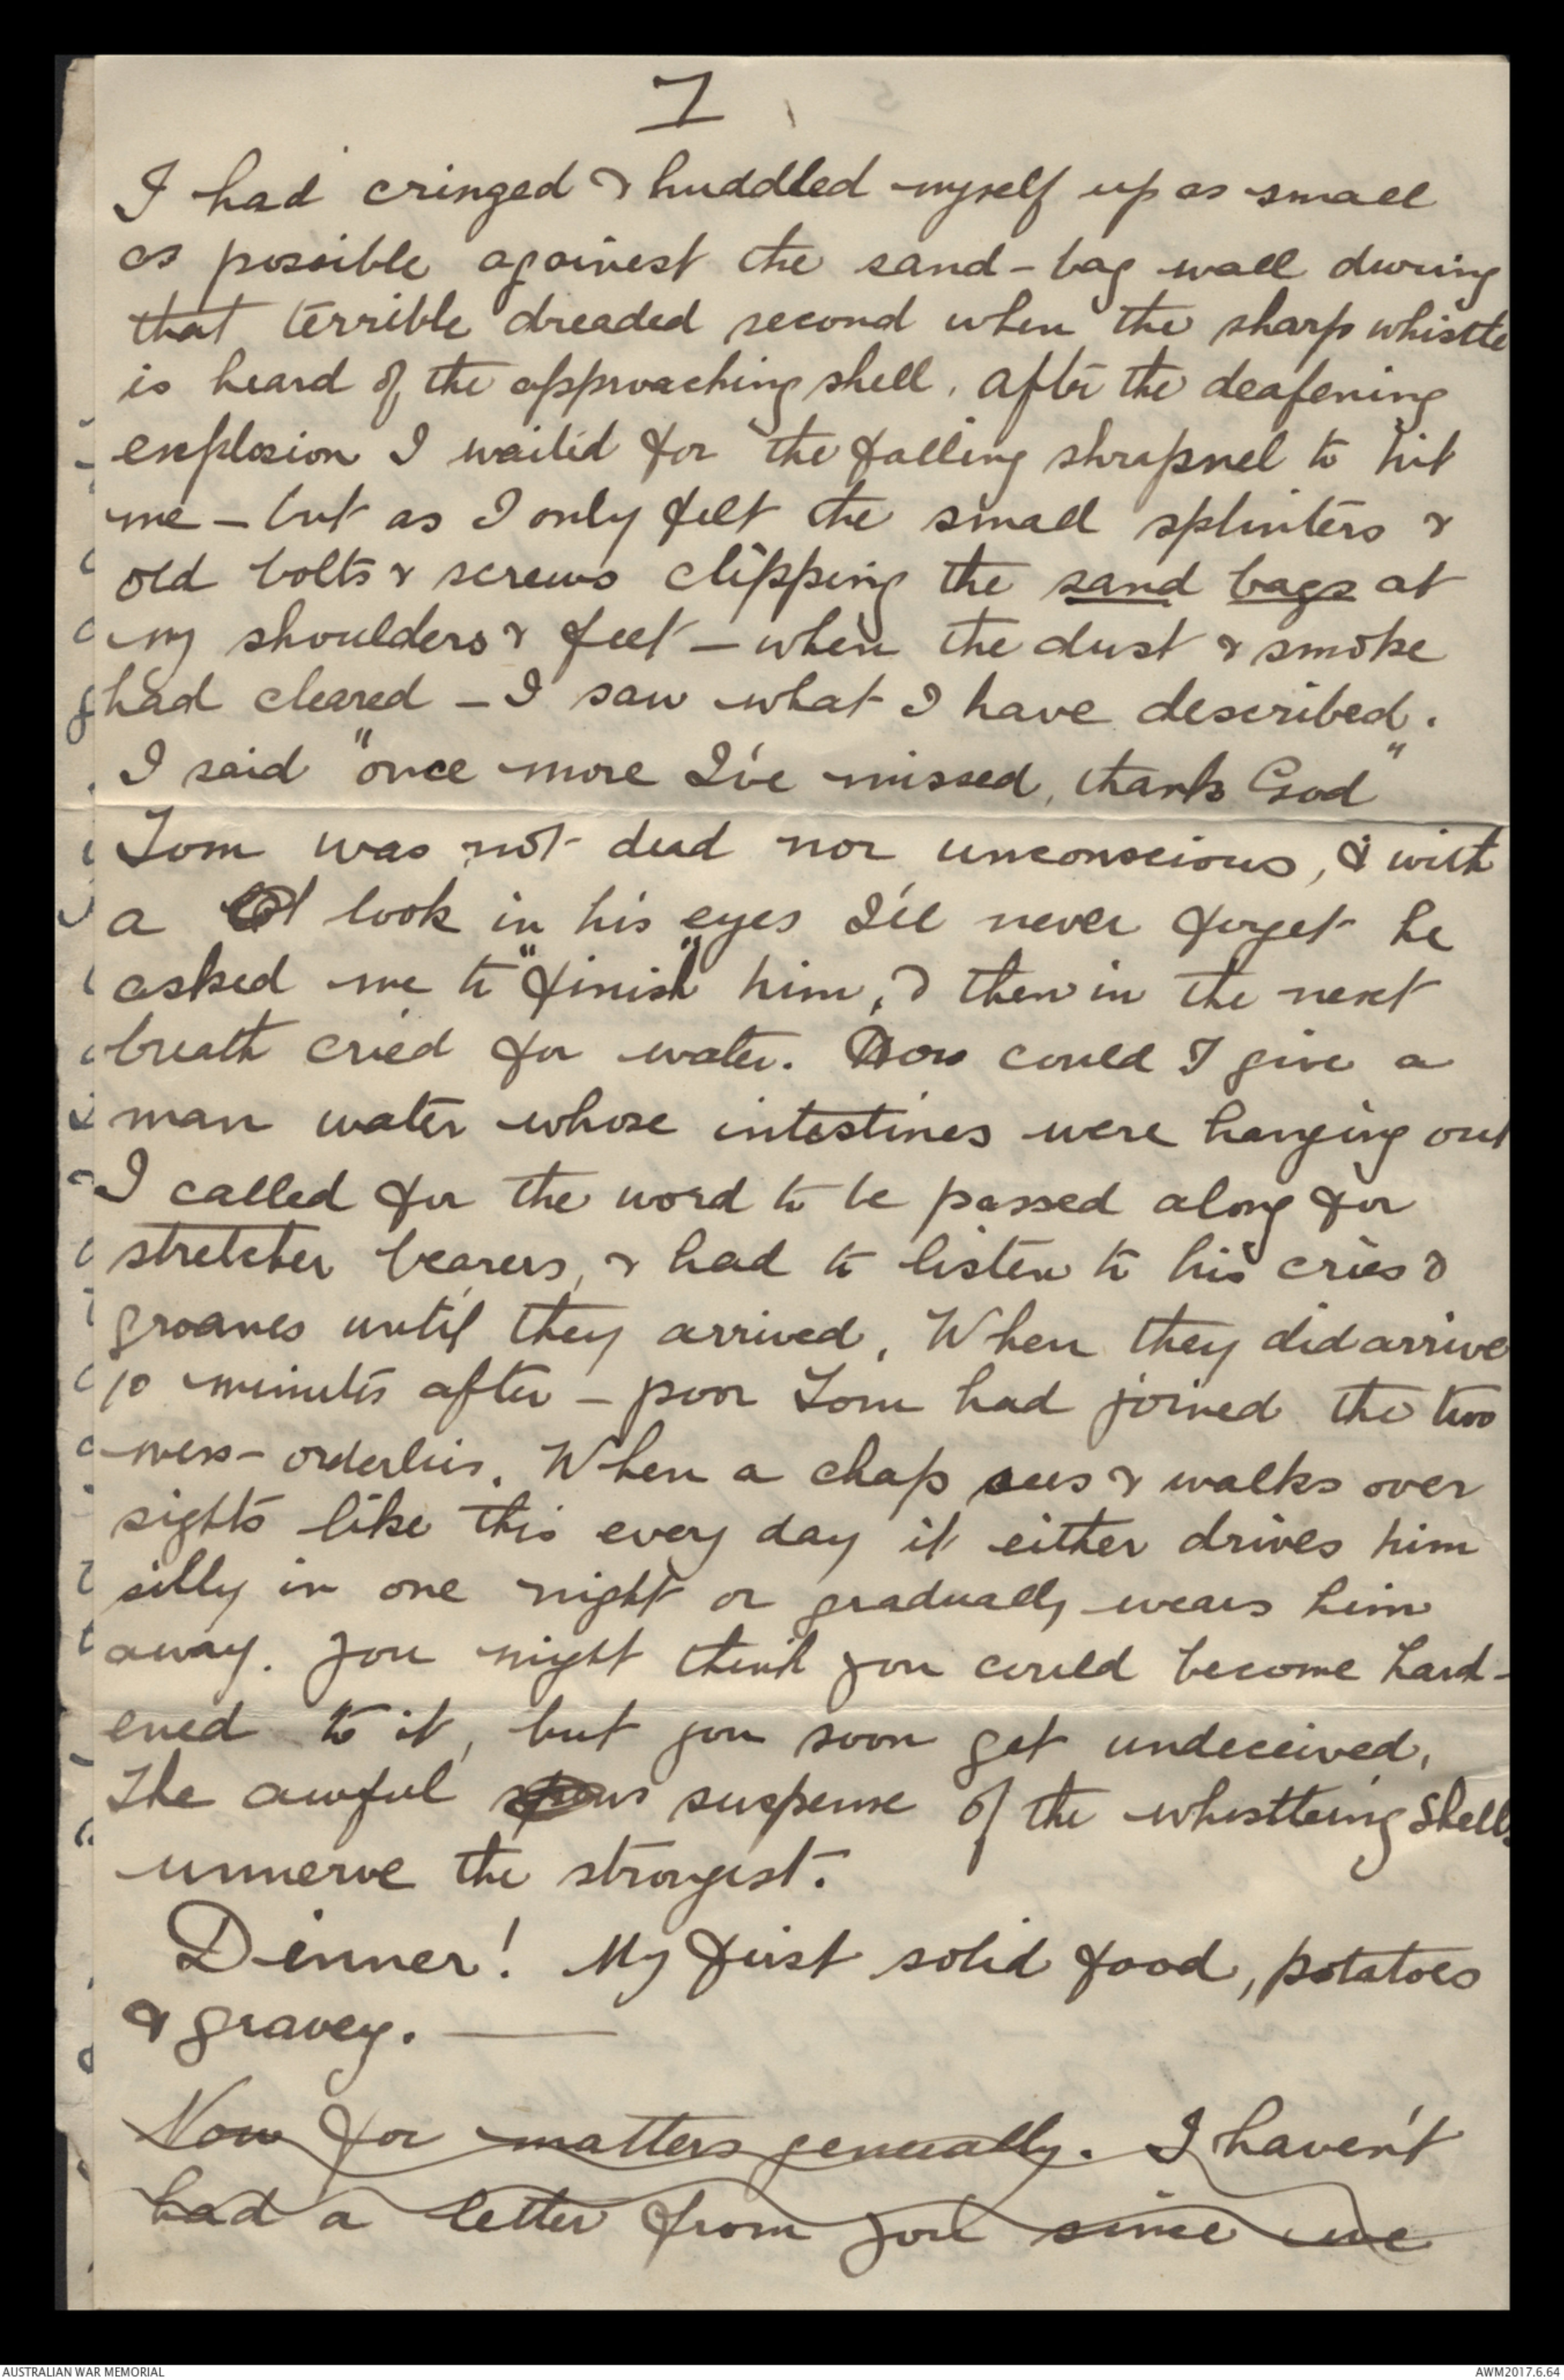 7
I had cringed & huddled myself up as small
as possible againest the sand-bag wall during
that terrible dreaded second when the sharp whistle
is heard of the approaching shell. After the deafening
explosion I waited for the falling shrapnel to hit
me – but as I only felt the small splinters &
old bolts & screws clipping the sand bags at
my shoulders & feet – when the dust & smoke
had cleared – I saw what I have described.
I said "once more I've missed, thank God"
Tom was not dead nor unconscious, & with
a look in his eyes I'll never forget he
asked me to "finish" him, & then in the next
breath cried for water. How could I give a
man water whose intestines were hanging out
I called for the word to be passed along for
stretcher bearers, & had to listen to his cries &
groanes until they arrived. When they did arrive
10 minutes after – poor Tom had joined the two
mess-orderlies. When a chap sees & walks over
sights like this every day it either drives him
silly in one night or gradually wears him
away. You might think you could become hard-
ened to it, but you soon get undeceived.
The awful suspense of the whistleing shells
unnerve the strongest.
Dinner! My first solid food, potatoes
& gravey. —
Now for matters generally. I haven't
had a letter from you since we
AUSTRALIAN WAR MEMORIAL
AWM2017.6.64